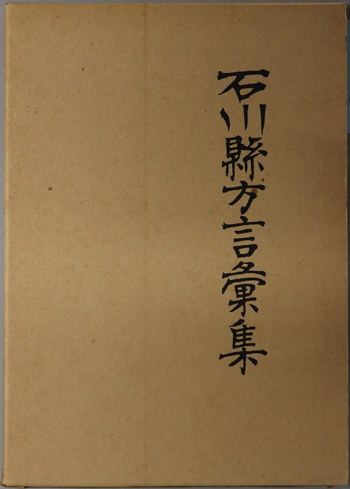 石川縣方言彙集